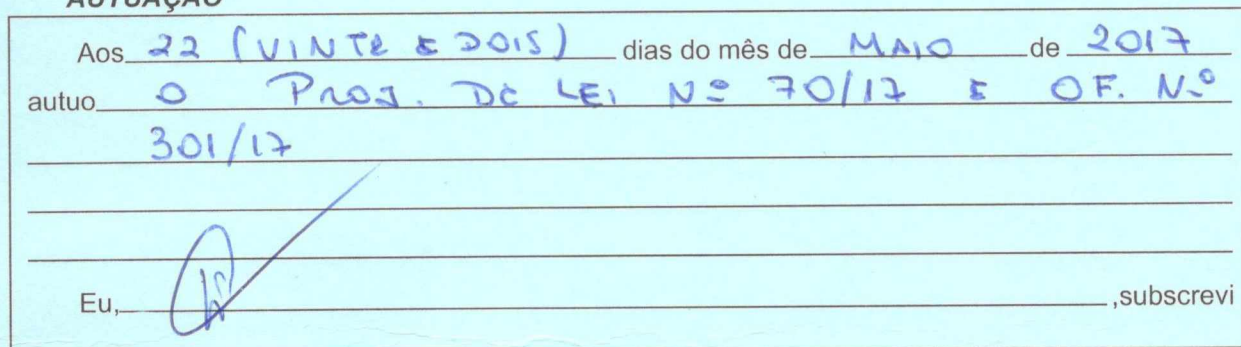 AUTUAÇÃO
Aos 22 (VINTE E DOIS) dias do mês de MAIO de 2017
autuo O PROJ. DE LEI Nº 70/17 E OF. Nº
301/17
Eu, ,subscrevi